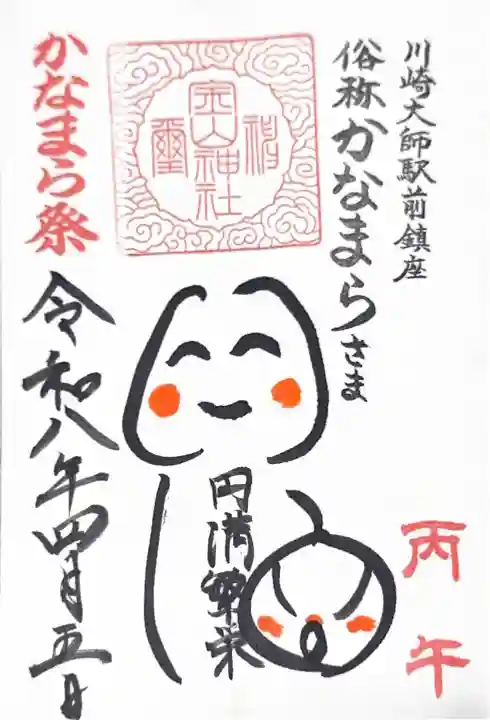 川崎大師駅前鎮座
俗称かなまらさま
金山神社
かなまら祭
令和八年四月五日
円満
丙午